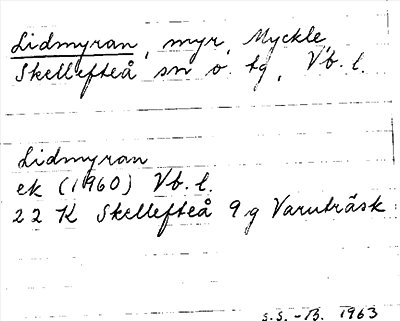 Lidmyran, myr, Myckle,
Skellefteå sn o. tg, Vb. l.
Lidmyran
ek (1960) Vb. l.
22 K Skellefteå 9g Varuträsk
S.S.-B. 1963